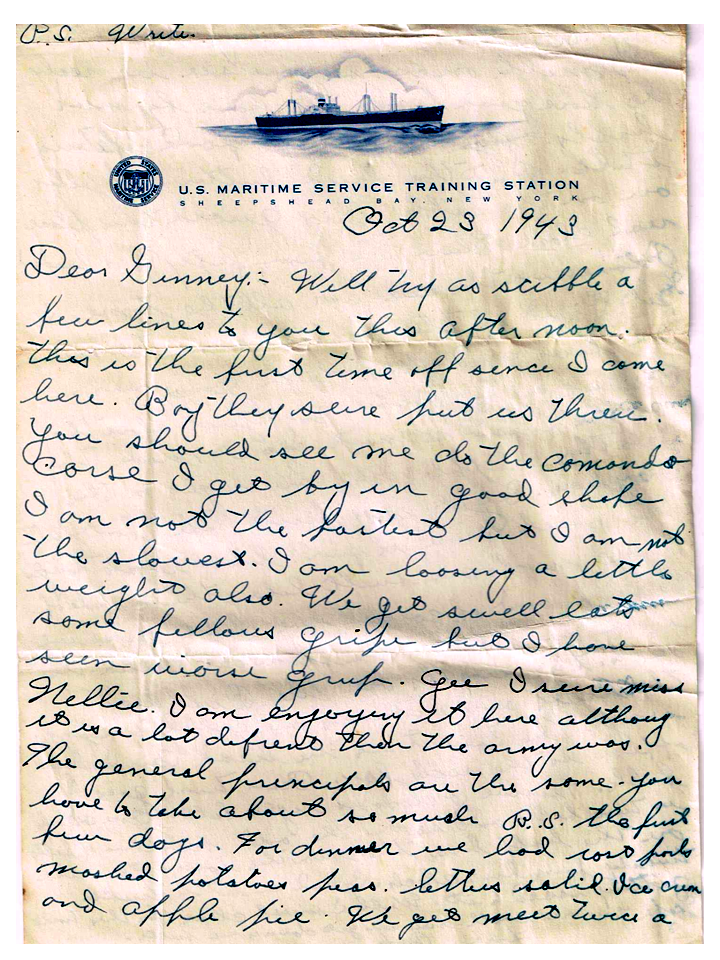 P.S. Write.
UNITED STATES MARITIME SERVICE
U.S. MARITIME SERVICE TRAINING STATION
SHEEPSHEAD BAY, NEW YORK
Oct 23 1943
Dear Ginney:- Well try as scibble a
few lines to you this after noon.
this is the first time off sence I come
here. Boy they sure put us threu.
You should see me do the comando
corse I get by in good shape
I am not the fastest but I am not
the slowest. I am loosing a little
weight also. We get swell eats
some fellows gripe but I have
seen worse grup. Gee I sure miss
Nellie. I am enjoying it here althoug
it is a lot defrent then the army was.
The general principals are the same - you
have to take about so much B.S. the first
few days. For dinner we had rost pork
mashed potatoes peas. lettus salid. Ice crem
and apple pie. We get meet twice a